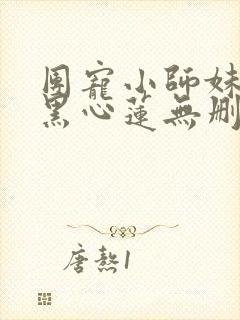 團寵小師妹
黑心蓮無刪
唐熬1